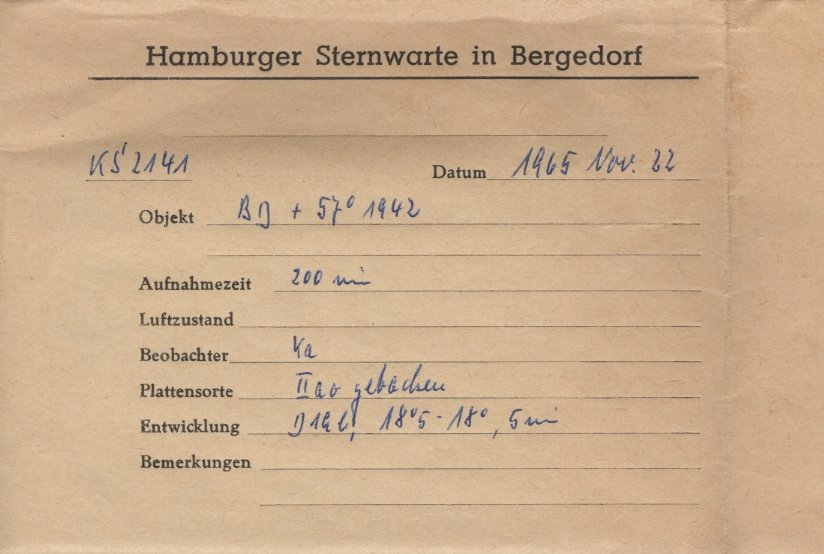 Hamburger Sternwarte in Bergedorf
KS 2141 Datum 1965 Nov. 22
Objekt BD + 57° 1942
Aufnahmezeit 200 min
Luftzustand
Beobachter Ka
Plattensorte IIaO gebacken
Entwicklung D19b, 18°5 - 18°, 5 min
Bemerkungen